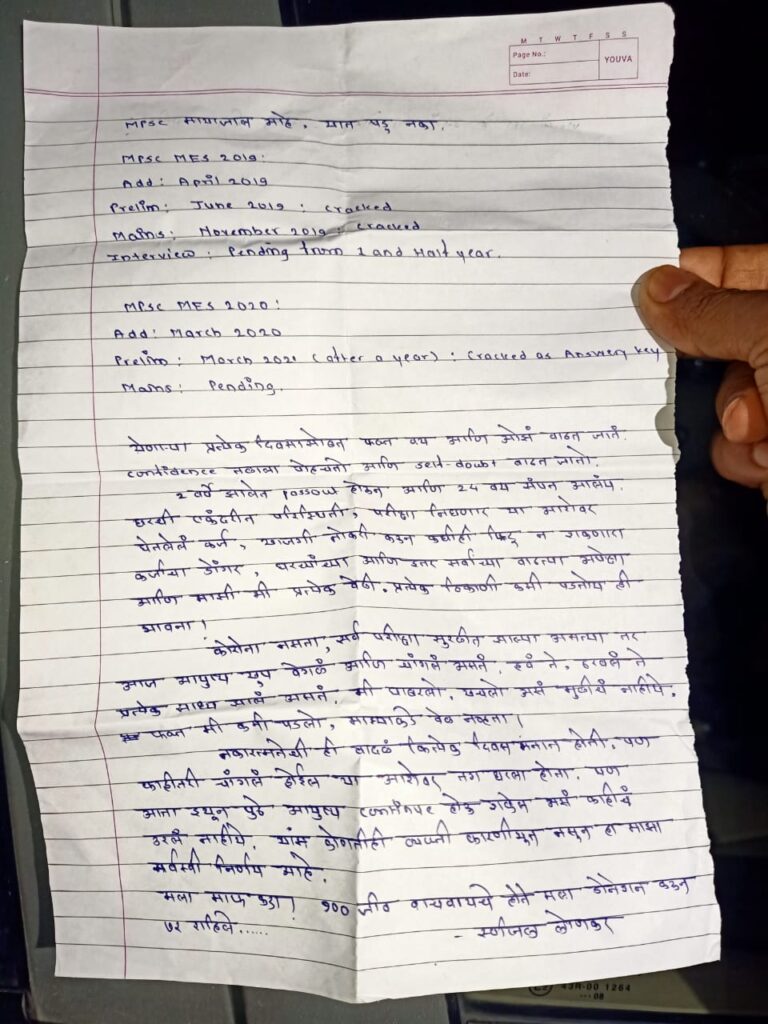 M T W T F S S
Page No.:
YOUVA
Date:
MPSC मायाजाल आहे, यात पडू नका.
MPSC MES 2019:
Add: April 2019
Prelim: June 2019 : Cracked
Mains: November 2019 : Cracked
Interview : Pending from 1 and Half year.
MPSC MES 2020:
Add: March 2020
Prelim: March 2021 (after a year) : Cracked as Answery key
Mains: Pending.
येणाऱ्या प्रत्येक दिवसासोबत फक्त वय आणि ओझं वाढत जातं.
confidence तळाला पोहचतो आणि self-doubt वाढत जातो.
2 वर्षे झालेत passout होऊन आणि 24 वय संपत आलंय.
घरची एकंदरीत परिस्थिती, परीक्षा निघणार या आशेवर
घेतलेलं कर्ज, खाजगी नोकरी करून कधीही फिटू न शकणारा
कर्जाचा डोंगर, घरच्यांच्या आणि इतर सर्वांच्या वाढत्या अपेक्षा
आणि माझी मी प्रत्येक वेळी, प्रत्येक ठिकाणी कमी पडतोय ही
भावना!
कोरोना नसता, सर्व परीक्षा सुरळीत झाल्या असत्या तर
आज आयुष्य खूप वेगळं आणि चांगलं असतं. हवं ते, ठरवलं ते
प्रत्येक साध्य झालं असतं. मी घाबरलो, खचलो असं मुळीच नाहीये.
फक्त मी कमी पडलो, माझ्याकडे वेळ नव्हता!
नकारात्मतेची ही वादळं कित्येक दिवस मनात होती. पण
काहीतरी चांगलं होईल या आशेवर तग धरला होता. पण
आता इथून पुढे आयुष्य continue होऊ शकेल असं काहीच
उरलं नाहीये. यांस कोणतीही व्यक्ती कारणीभूत नसून हा माझा
सर्वस्वी निर्णय आहे.
मला माफ करा! १०० जीव वाचवायचे होते मला डोनेशन करून
७२ राहिले......
- स्वप्निल लोणकर
43R-00 1264